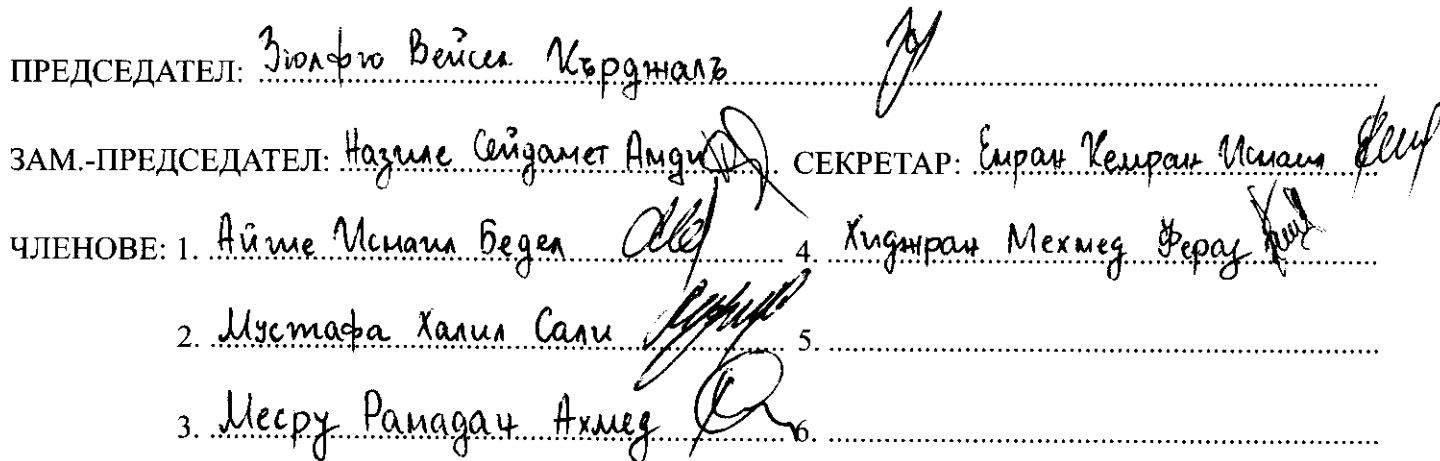 ПРЕДСЕДАТЕЛ: Зюлфю Вейсел Кърджалъ
ЗАМ.-ПРЕДСЕДАТЕЛ: Назиле Сейдамет Амди СЕКРЕТАР: Емран Кемран Исмаил
ЧЛЕНОВЕ: 1. Айше Исмаил Бедел 4. Хиджран Мехмед Ферад
2. Мустафа Халил Сали 5.
3. Месру Рамадан Ахмед 6.